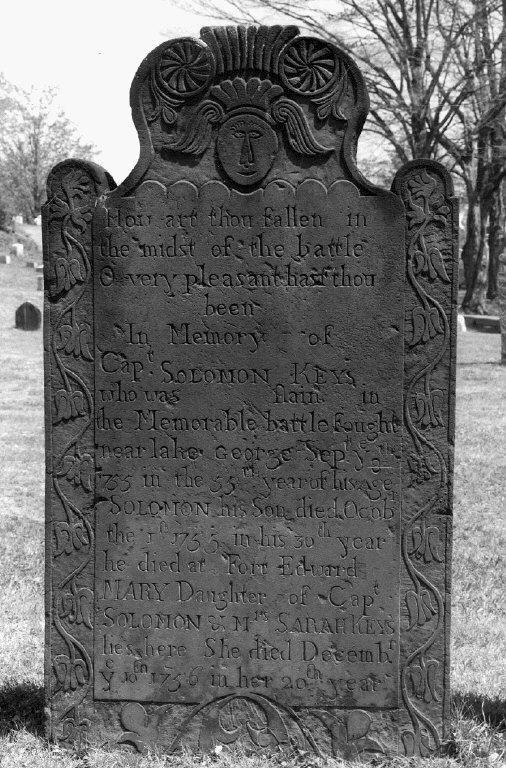 How art thou fallen in
the midst of the battle
O very pleasant hast thou
been
In Memory of
Capᵗ SOLOMON KEYS
who was ſlain in
the Memorable battle fought
near lake George Sepᵗ yᵉ 8ᵗʰ
1755 in the 55ᵗʰ year of his age
SOLOMON his Son died Octobʳ
the 1ˢᵗ 1755 in his 30ᵗʰ year
he died at Fort Edward
MARY Daughter of Capᵗ
SOLOMON & Mʳˢ SARAH KEYS
lies here She died Decembʳ
yᵉ 10ᵗʰ 1756 in her 20ᵗʰ year